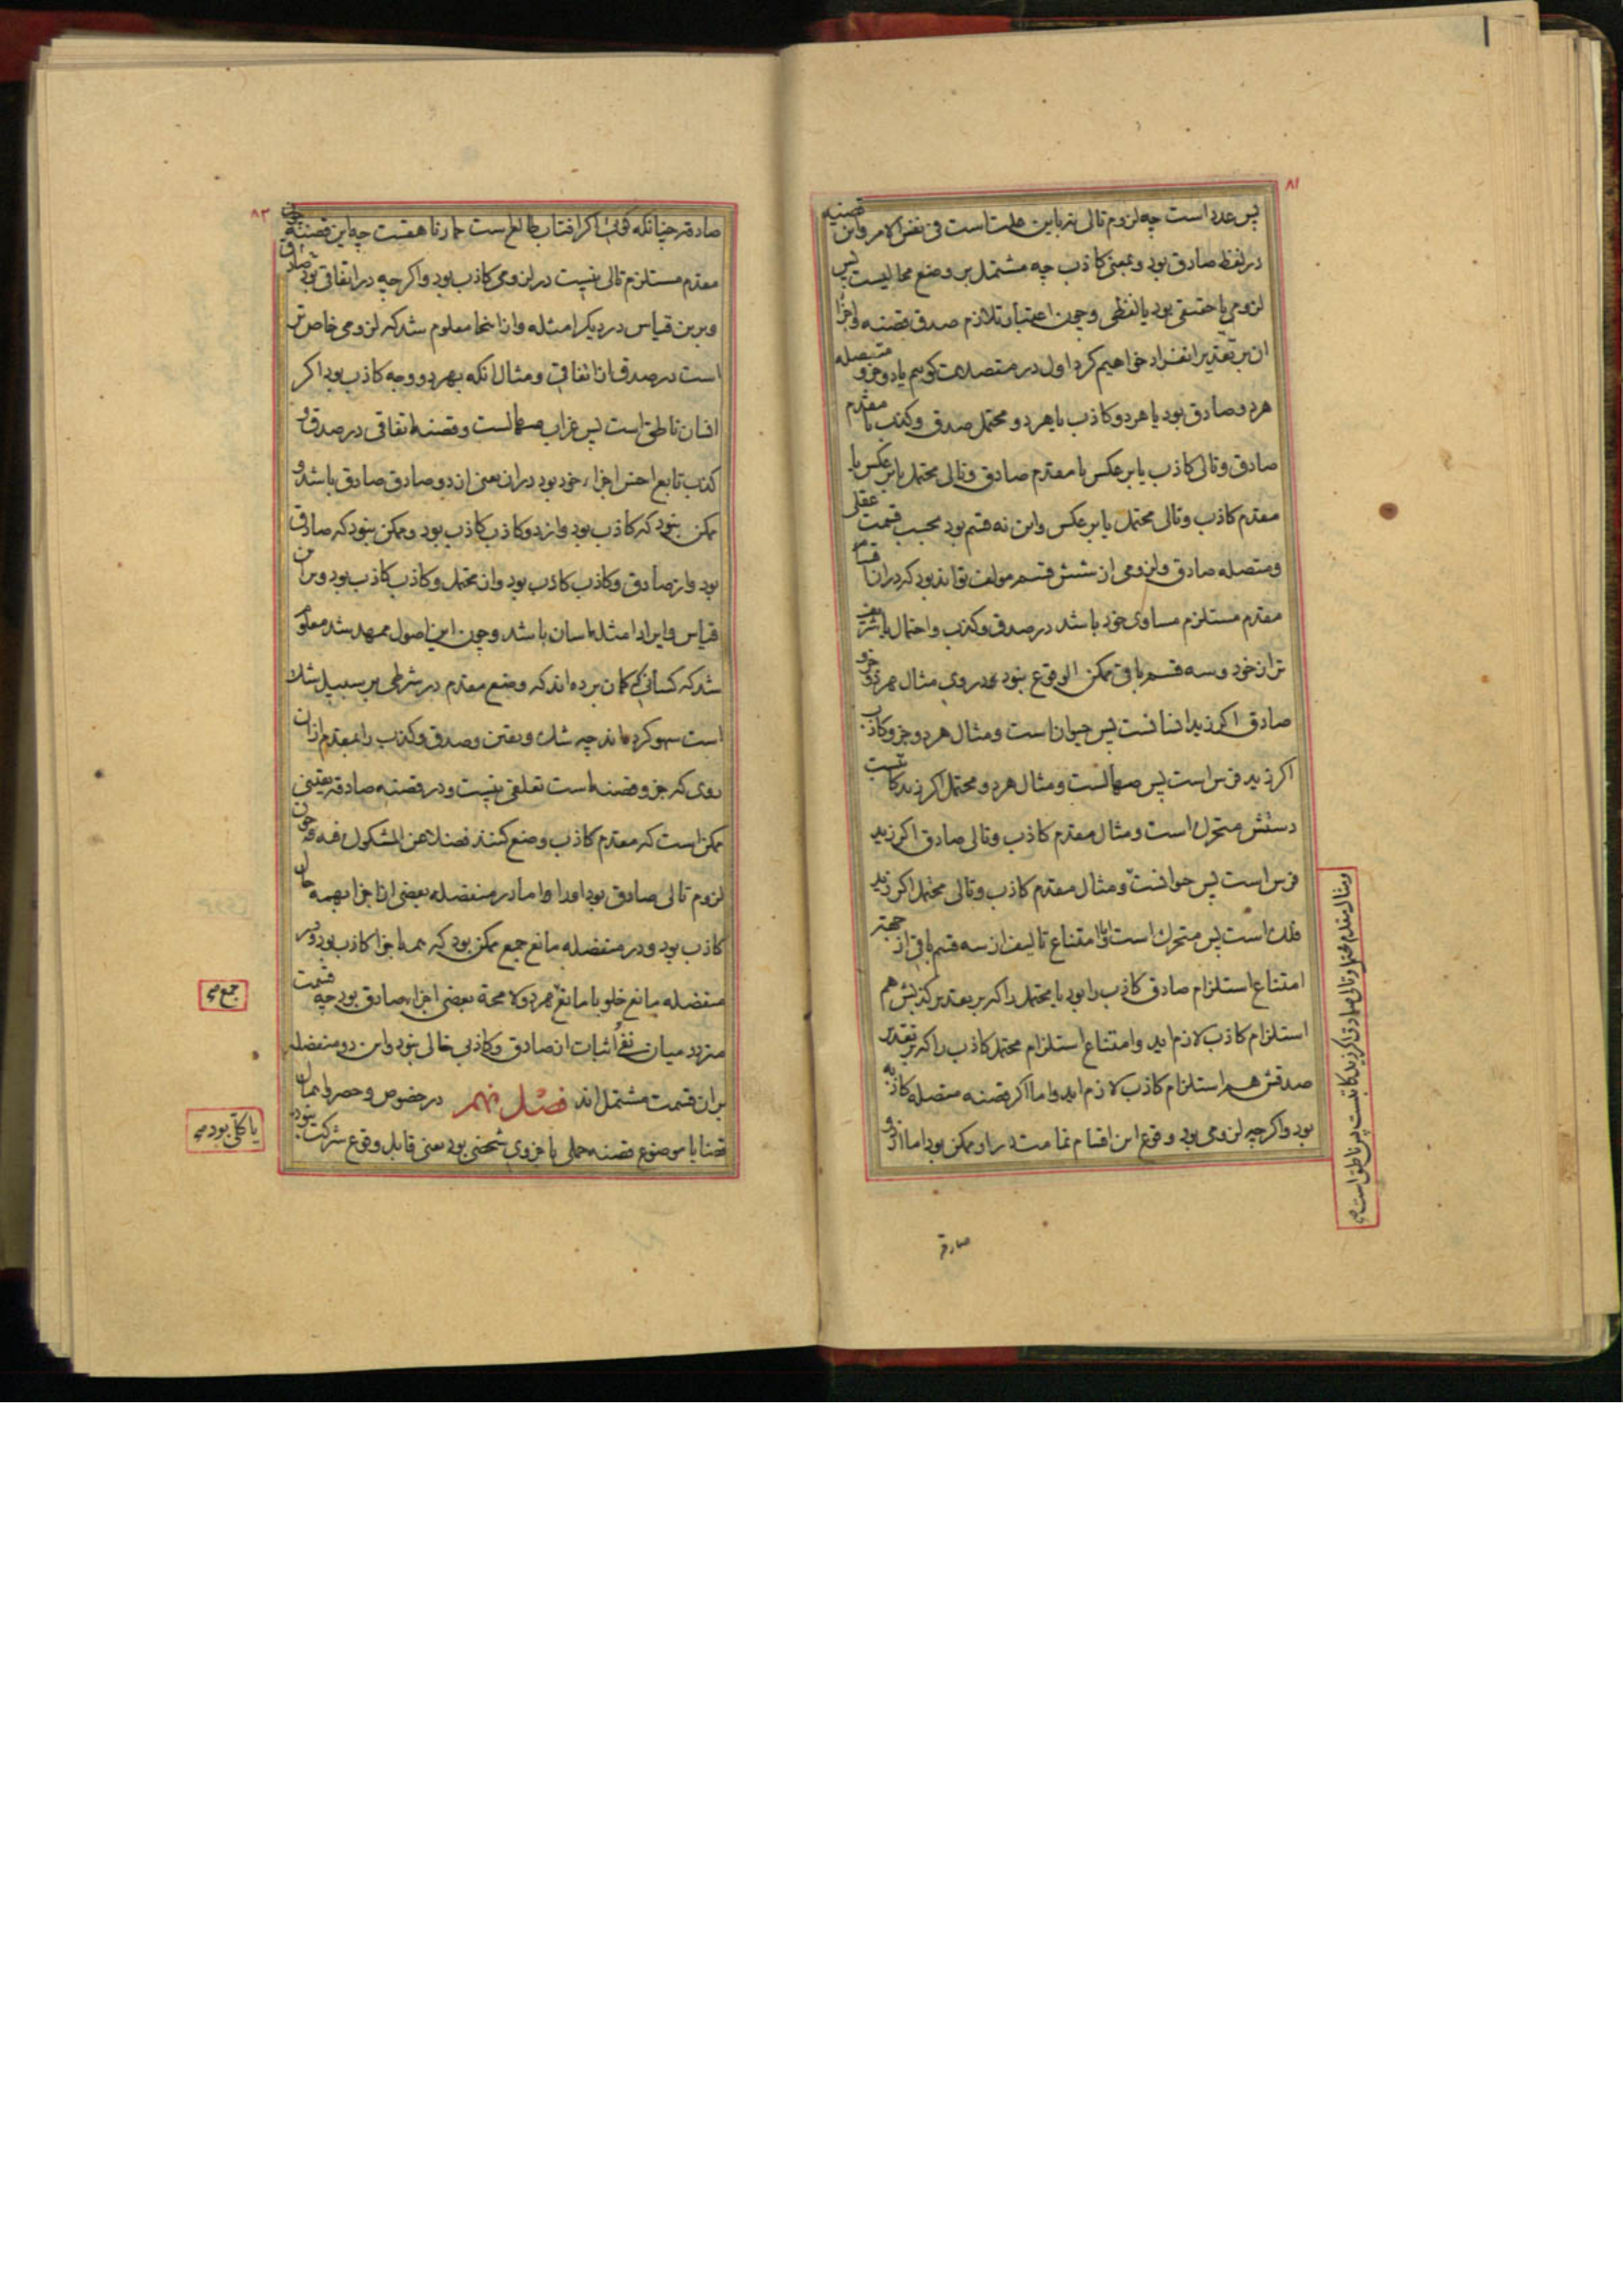 ۸۱
پس عدد است چه لزوم تالی نه باین علت است فی نفس الامر و این قضیه
در لفظ صادق بود و بمعنی کاذب چه مشتمل بر وضع محالیست پس
لزومی یا حقیقی بود یا لفظی و چون اعتبار تلازم صدق قضیه و اجزا
ان بر تقدیر انفراد خواهیم کرد اول در متصلات کوییم یا دو جزو متصله
هر دو صادق بود یا هر دو کاذب یا هر دو محتمل صدق و کذب یا مقدم
صادق و تالی کاذب یا بر عکس یا مقدم صادق و تالی محتمل یا بر عکس یا
مقدم کاذب و تالی محتمل یا بر عکس و این نه قسم بود بحسب قسمت عقلی
و متصله صادق و لزومی از شش قسم مولف تواند بود که در ان اقسام
مقدم مستلزم مساوی خود باشد در صدق و کذب و احتمال یا شریف
تر از خود و سه قسم باقی ممکن الوقوع نبود در وی مثال هر دو جزو
صادق اکر زید انسانست پس حیوان است و مثال هر دو جزو کاذب
اکر زید فرس است پس صهالست و مثال هر دو محتمل اکر زید کاتبست
دستش متحرک است و مثال مقدم کاذب و تالی صادق اکر زید
فرس است پس حیوانست و مثال مقدم کاذب و تالی محتمل اکر زید
فلک است پس متحرک است و اما امتناع تالیف از سه قسم باقی از جهت
امتناع استلزام صادق کاذب را بود یا محتمل را که بر تقدیر کذبش هم
استلزام کاذب لازم اید و امتناع استلزام محتمل کاذب را که بر تقدیر
صدقش هم استلزام کاذب لازم اید و اما اکر قضیه متصله کاذبه
بود و اکرچه لزومی بود وقوع این اقسام تمامت در او ممکن بود اما از دو
صادقه
و مثال مقدم محتمل و تالی صادق اکر زید کاتبست پس ناطق است صح
۸۲
صادقه چنانکه کویی اکر افتاب طالع است حمار ناهقست چه این قضیه چون
مقدم مستلزم تالی نیست در لزومی کاذب بود و اکرچه در اتفاقی صادق بود
و برین قیاس در دیکر امثله و از اینجا معلوم شد که لزومی خاص تر
است در صدق از اتفاقی و مثال انکه بهر دو وجه کاذب بود اکر
انسان ناطق است پس غراب صهالست و قضیه اتفاقی در صدق و
کذب تابع اخس اجزاء خود بود در ان یعنی از دو صادق صادق باشد و
ممکن نبود که کاذب بود و از دو کاذب کاذب بود و ممکن نبود که صادق
بود و از صادق و کاذب کاذب بود و از محتمل و کاذب کاذب بود و برین
قیاس و ایراد امثله اسان باشد و چون این اصول ممهد شد معلوم
شد که کسانی که کمان برده اند که وضع مقدم در شرطی بر سبیل شک
است سهو کرده اند چه شک و یقین و صدق و کذب را بمقدم از ان
روی که جزو قضیه است تعلقی نیست و در قضیه صادقه یقینی
ممکن است که مقدم کاذب وضع کنند فضلا عن المشکوک فیه چون
لزوم تالی صادق بود او را و اما در منفصله بعضی از اجزا بهمه حال
کاذب بود و در منفصله مانع جمع ممکن بود که همه اجزا کاذب بود و در
منفصله مانع خلو یا مانع هر دو لا محة بعضی اجزاء صادق بود چه قسمت
متردد میان نفی و اثبات از صادق و کاذبی خالی نبود و این دو منفصله
بران قسمت مشتمل اند فصل نهم در خصوص و حصر و اهمال
قضایا موضوع قضیه حملی یا جزوی شخصی بود یعنی قابل وقوع شرکت نبود
جمع صح
یا کلی بود صح